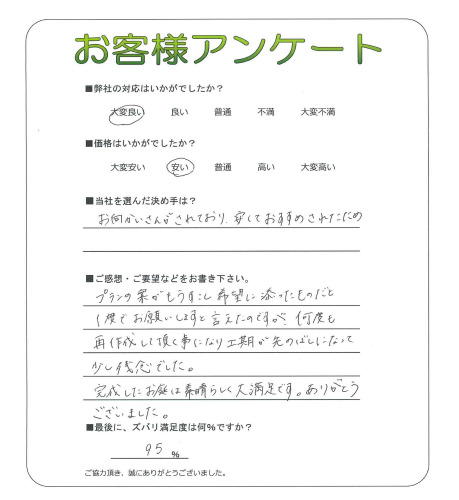 お客様アンケート
■弊社の対応はいかがでしたか？
大変良い 良い 普通 不満 大変不満
■価格はいかがでしたか？
大変安い 安い 普通 高い 大変高い
■当社を選んだ決め手は？
お向かいさんがされており、安くておすすめされたため
■ご感想・ご要望などをお書き下さい。
プランの案がもうすこし希望に添ったものだと
1度でお願いしますと言えたのですが、何度も
再作成して頂く事になり工期が先のばしになって
少し残念でした。
完成したお庭は素晴らしく大満足です。ありがとう
ございました。
■最後に、ズバリ満足度は何％ですか？
95 ％
ご協力頂き、誠にありがとうございました。